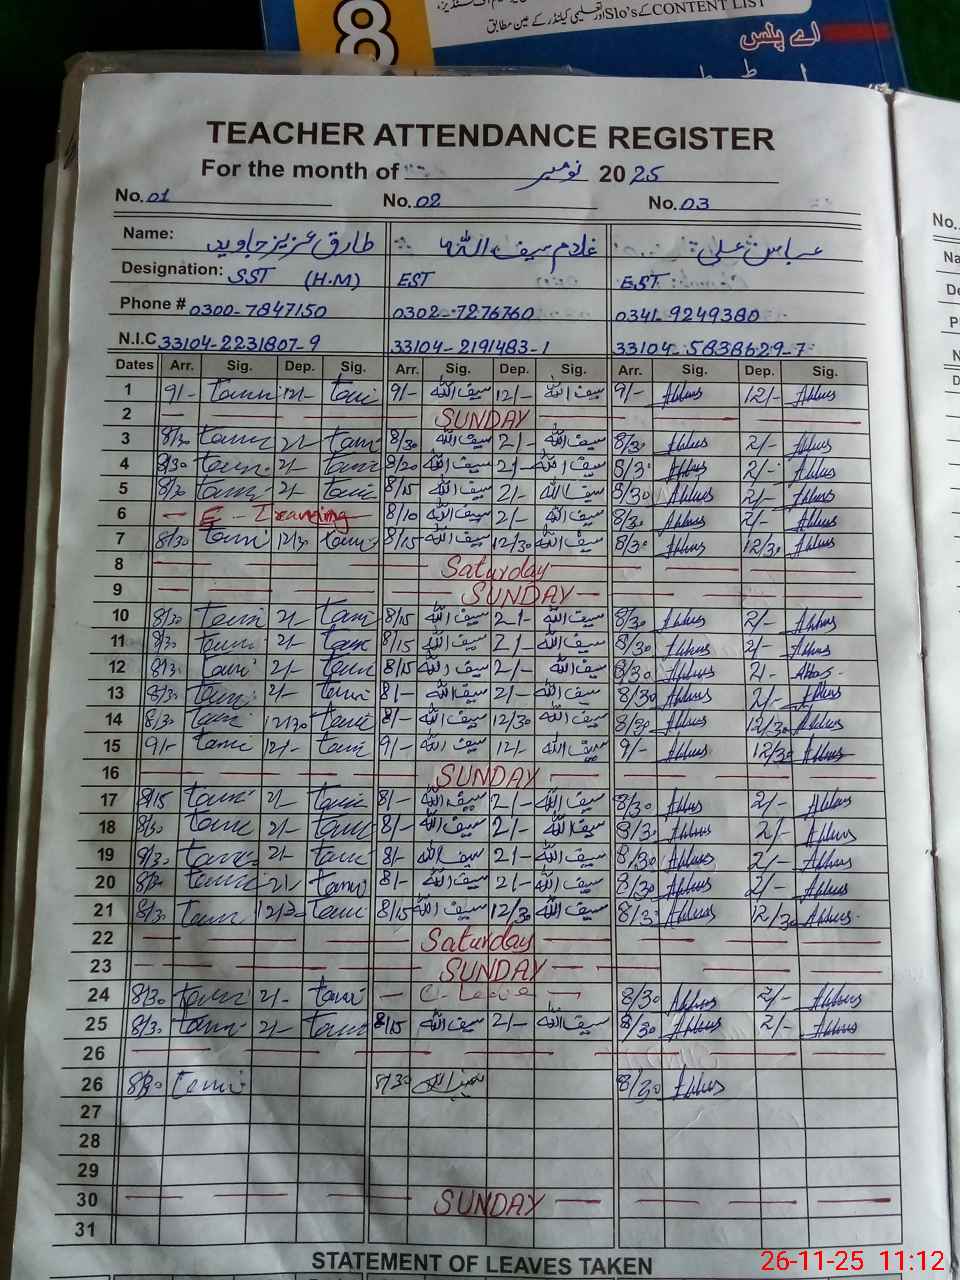 8
CONTENT LIST کے Slo's اور تعلیمی کیلنڈر کے عین مطابق
اے پلس
TEACHER ATTENDANCE REGISTER
For the month of نومبر 2025
No. 01 No. 02 No. 03
Name: طارق عزیز جاوید غلام سیف اللہ عباس علی
Designation: SST (H.M) EST EST
Phone # 0300-7847150 0302-7276760 0341-9249380
N.I.C 33104-2231807-9 33104-2191483-1 33104-5838629-7
Dates Arr. Sig. Dep. Sig. Arr. Sig. Dep. Sig. Arr. Sig. Dep. Sig.
1 9/- 12/- 9/- سیف اللہ 12/- سیف اللہ 9/- Abbas 12/- Abbas
2 SUNDAY
3 8/30 2/- 8/30 سیف اللہ 2/- سیف اللہ 8/30 Abbas 2/- Abbas
4 8/30 2/- 8/20 سیف اللہ 2/- سیف اللہ 8/30 Abbas 2/- Abbas
5 8/30 2/- 8/15 سیف اللہ 2/- سیف اللہ 8/30 Abbas 2/- Abbas
6 8/10 سیف اللہ 2/- سیف اللہ 8/30 Abbas 2/- Abbas
7 8/30 12/30 8/15 سیف اللہ 12/30 سیف اللہ 8/30 Abbas 12/30 Abbas
8 Saturday
9 SUNDAY
10 8/30 2/- 8/15 سیف اللہ 2/- سیف اللہ 8/30 Abbas 2/- Abbas
11 8/30 2/- 8/15 سیف اللہ 2/- سیف اللہ 8/30 Abbas 2/- Abbas
12 8/30 2/- 8/15 سیف اللہ 2/- سیف اللہ 8/30 Abbas 2/- Abbas
13 8/30 2/- 8/- سیف اللہ 2/- سیف اللہ 8/30 Abbas 2/- Abbas
14 8/30 12/30 8/- سیف اللہ 12/30 سیف اللہ 8/30 Abbas 12/30 Abbas
15 9/- 12/- 9/- سیف اللہ 12/- سیف اللہ 9/- Abbas 12/30 Abbas
16 SUNDAY
17 8/15 2/- 8/- سیف اللہ 2/- سیف اللہ 8/30 Abbas 2/- Abbas
18 8/30 2/- 8/- سیف اللہ 2/- سیف اللہ 8/30 Abbas 2/- Abbas
19 8/30 2/- 8/- سیف اللہ 2/- سیف اللہ 8/30 Abbas 2/- Abbas
20 8/30 2/- 8/- سیف اللہ 2/- سیف اللہ 8/30 Abbas 2/- Abbas
21 8/30 12/30 8/15 سیف اللہ 12/30 سیف اللہ 8/30 Abbas 12/30 Abbas
22 Saturday
23 SUNDAY
24 8/30 2/- C-Leave 8/30 Abbas 2/- Abbas
25 8/30 2/- 8/15 سیف اللہ 2/- سیف اللہ 8/30 Abbas 2/- Abbas
26
26 8/30 8/30 سیف اللہ 8/30 Abbas
27
28
29
30 SUNDAY
31
STATEMENT OF LEAVES TAKEN
No.
26-11-25 11:12